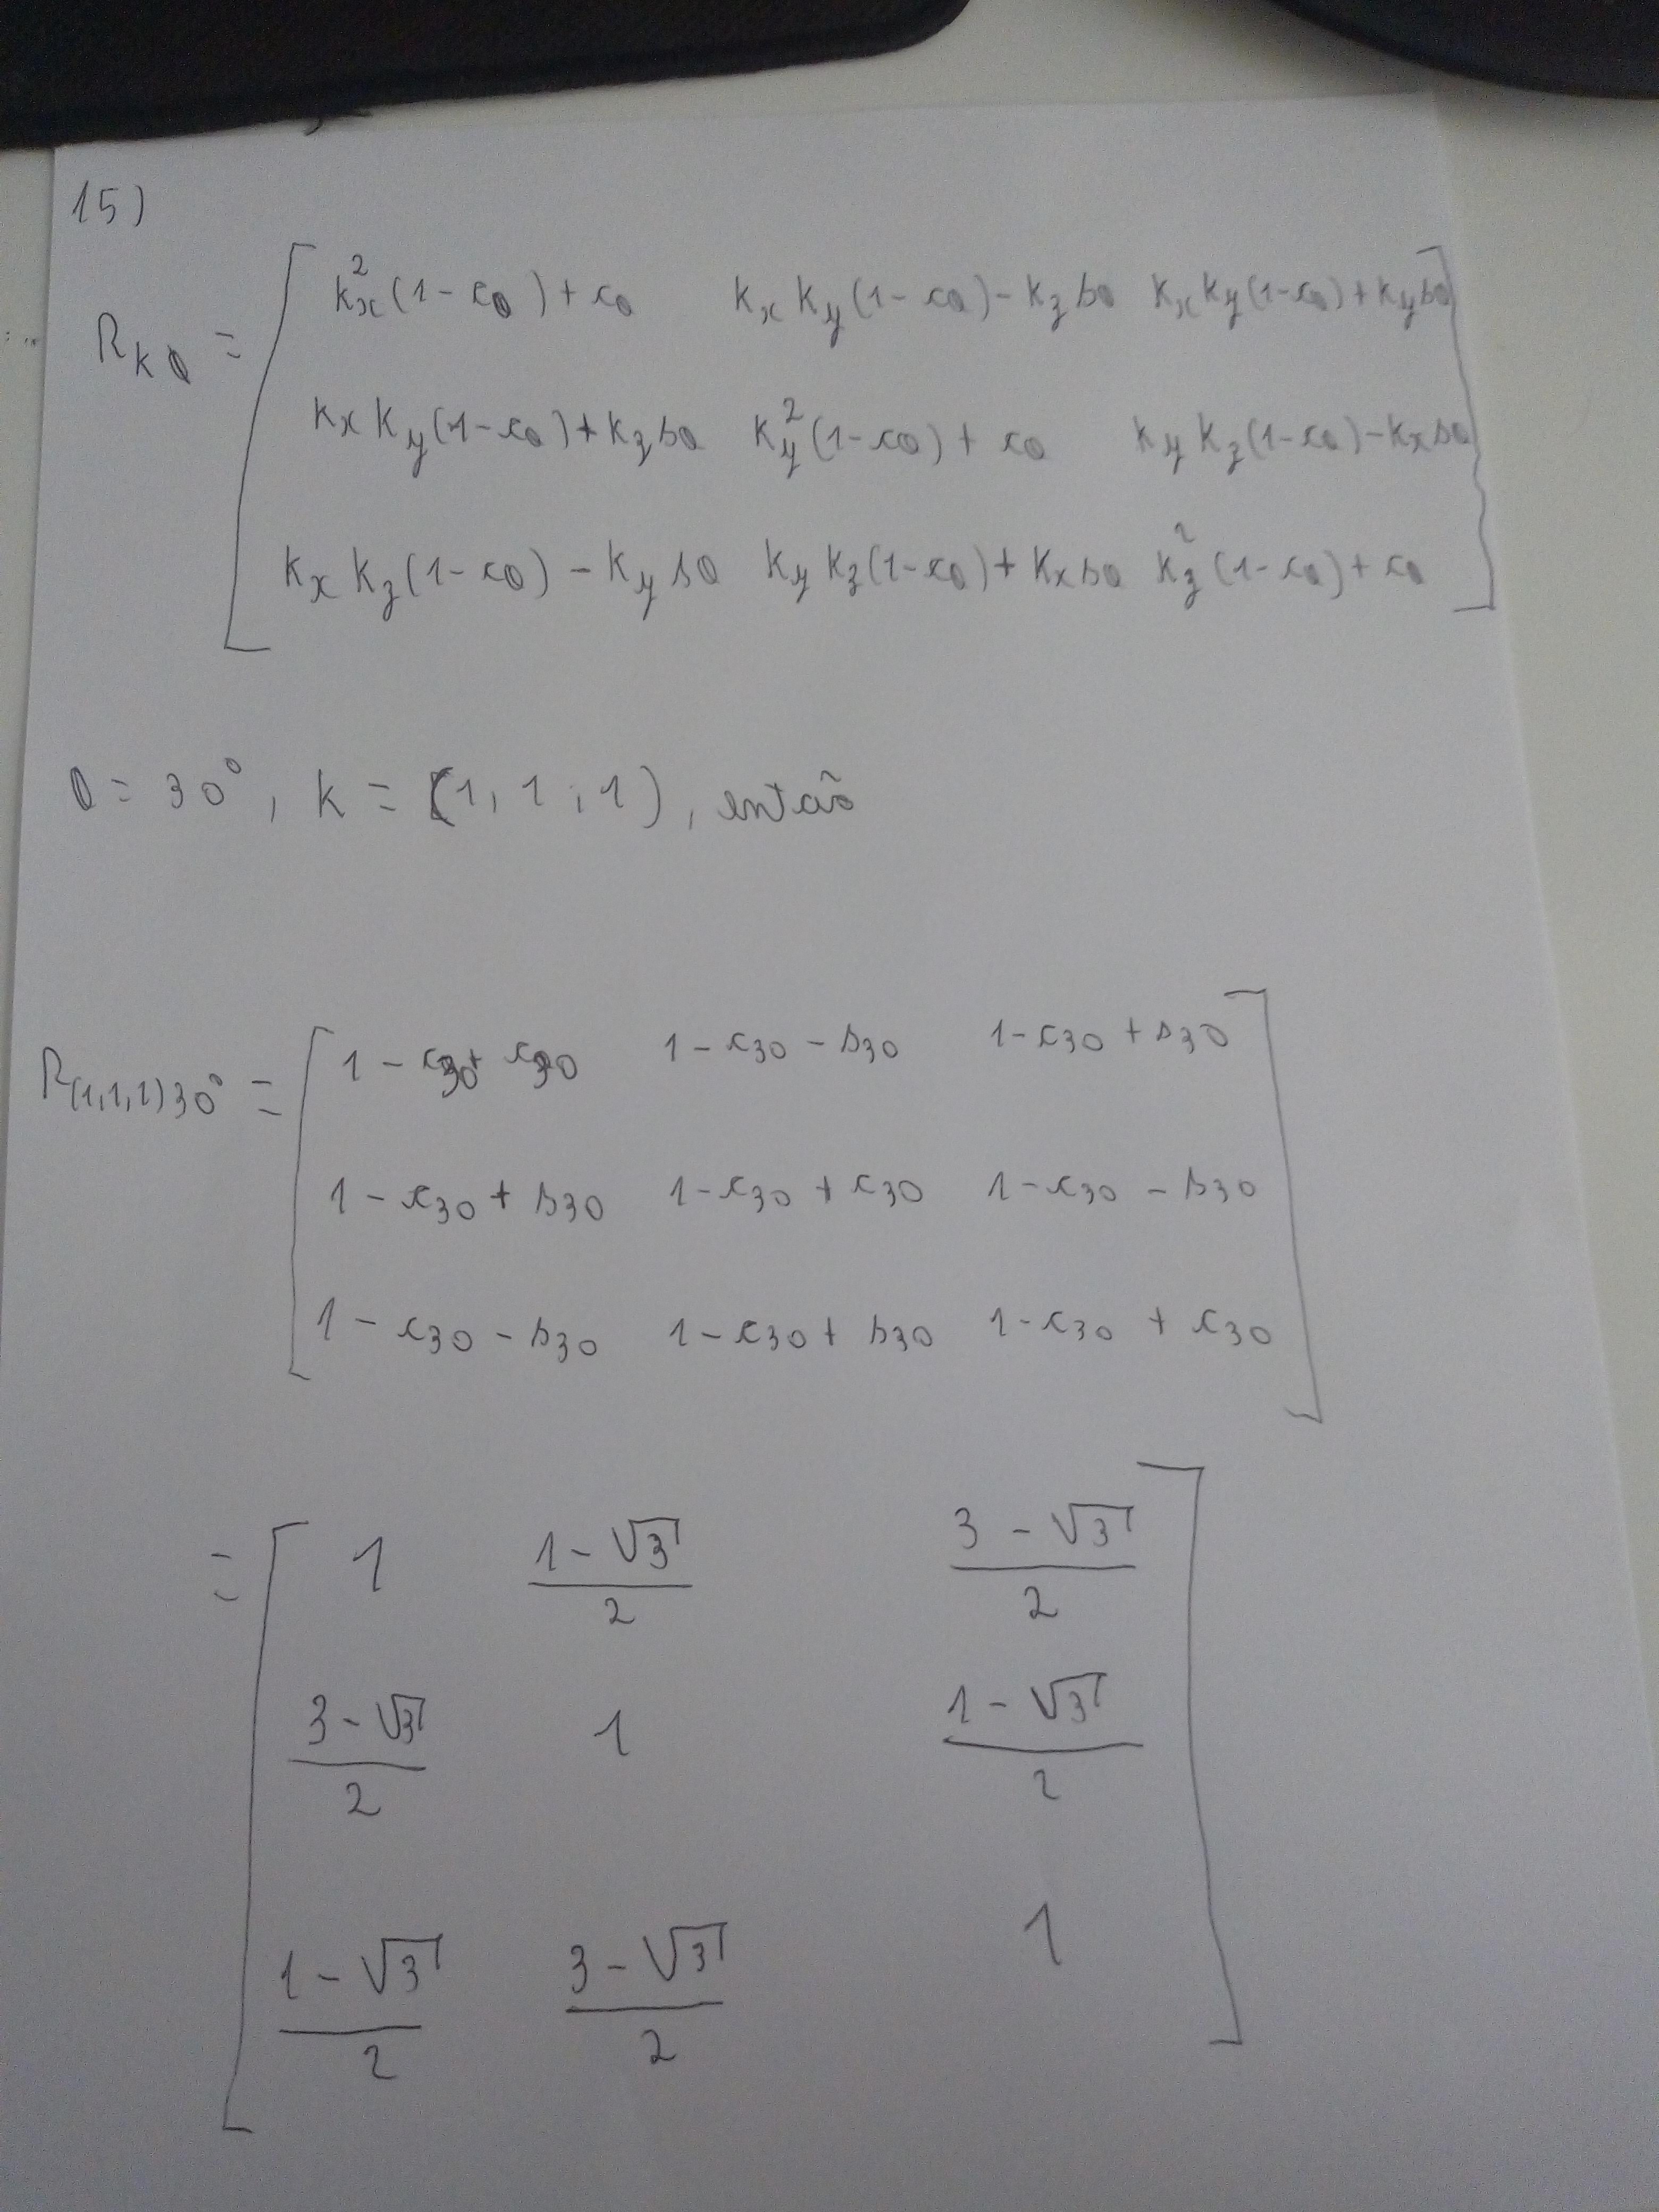 15)
R_kθ = [ k_x²(1-cθ)+cθ   k_x k_y(1-cθ)-k_z sθ   k_x k_y(1-cθ)+k_y sθ
k_x k_y(1-cθ)+k_z sθ   k_y²(1-cθ)+cθ   k_y k_z(1-cθ)-k_x sθ
k_x k_z(1-cθ)-k_y sθ   k_y k_z(1-cθ)+k_x sθ   k_z²(1-cθ)+cθ ]
θ = 30°, k = (1, 1, 1), então
R_(1,1,1)30° = [ 1-c30+c30   1-c30-s30   1-c30+s30
1-c30+s30   1-c30+c30   1-c30-s30
1-c30-s30   1-c30+s30   1-c30+c30 ]
= [ 1   (1-√3)/2   (3-√3)/2
(3-√3)/2   1   (1-√3)/2
(1-√3)/2   (3-√3)/2   1 ]